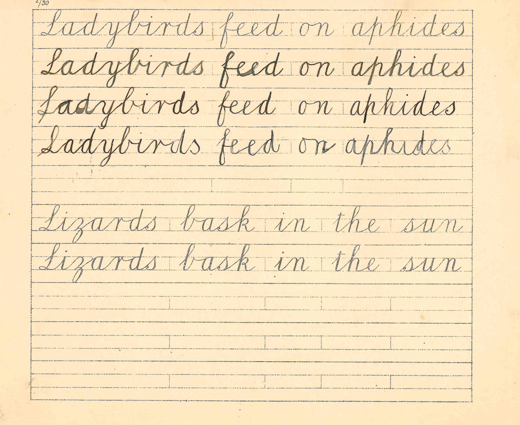 Ladybirds feed on aphides
Ladybirds feed on aphides
Ladybirds feed on aphides
Ladybirds feed on aphides
Lizards bask in the sun
Lizards bask in the sun